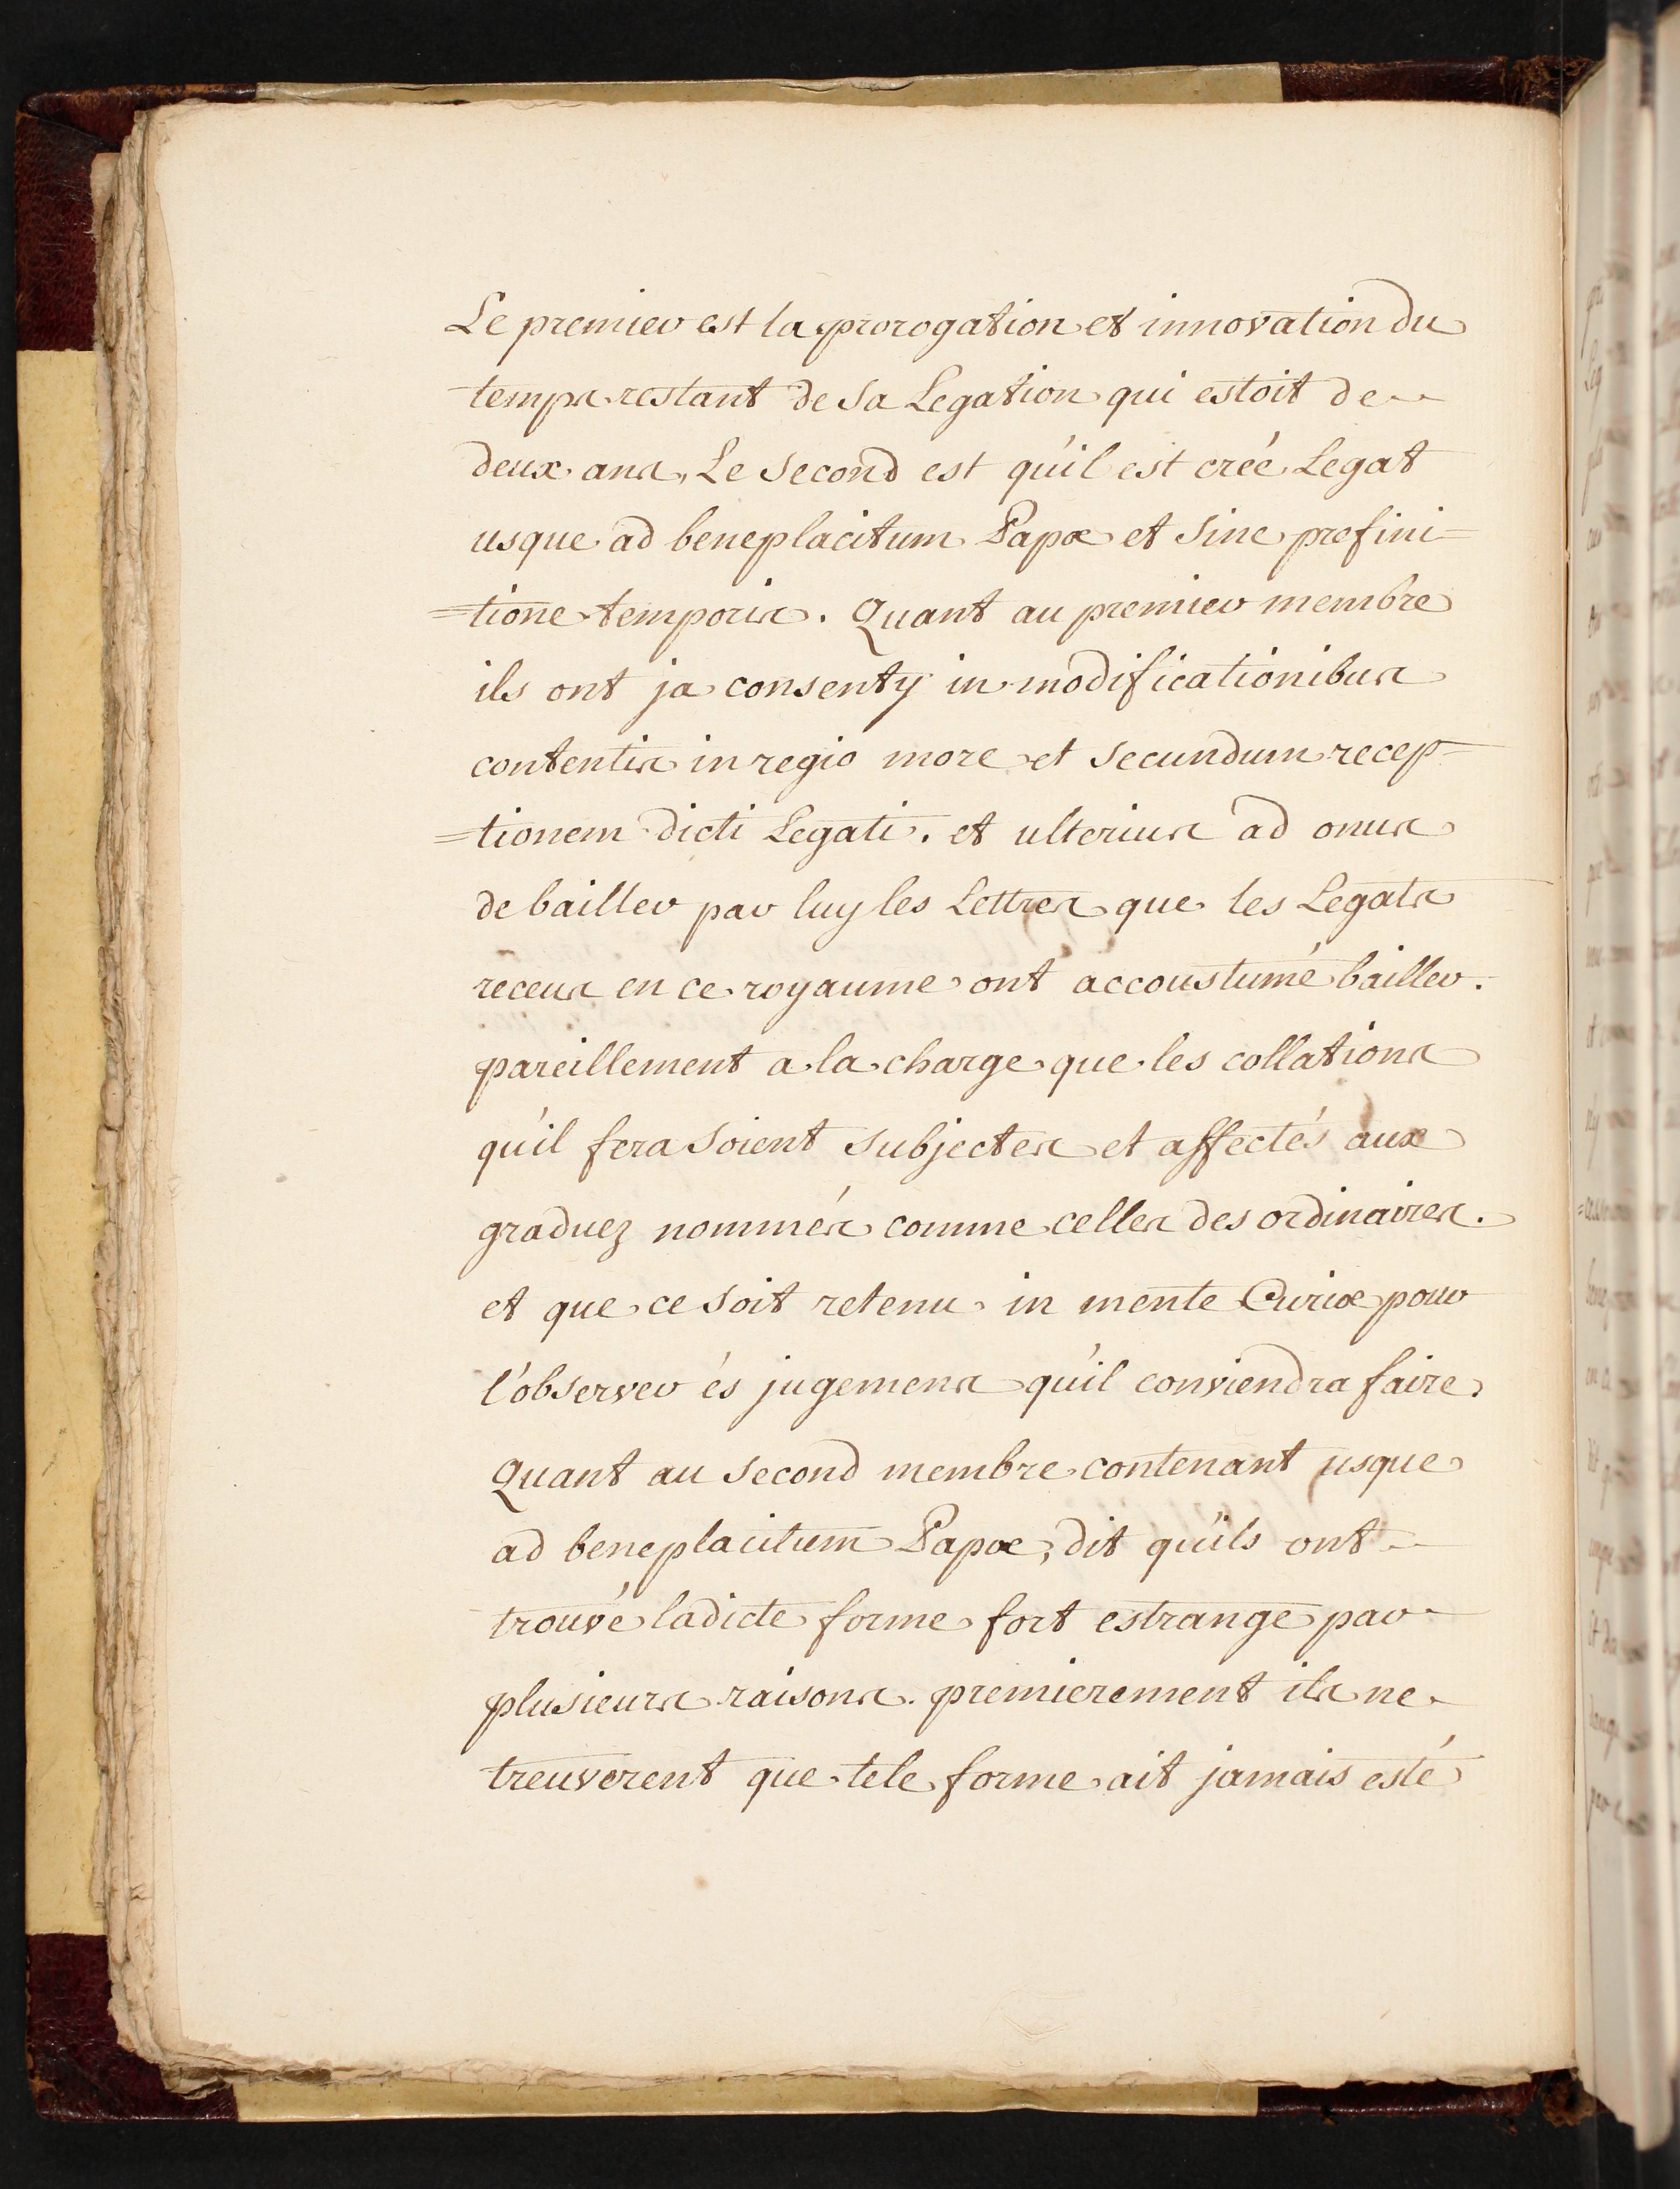 Le premier est la prorogation et innovation du
temps restant de sa Legation qui estoit de
deux ans, Le second est qu'il est créé Legat
usque ad beneplacitum Papæ et sine prefini=
=tione temporis. Quant au premier membre
ils ont ja consenty in modificationibus
contentis in regio more et secundum recep=
=tionem dicti Legati. et ulterius ad onus
de bailler par luy les Lettres que les Legats
receus en ce royaume ont accoustumé bailler.
pareillement a la charge que les collations
qu'il fera soient subjectes et affectés aux
graduez nommés comme celles des ordinaires.
et que ce soit retenu in mente Curiæ pour
l'observer és jugemens qu'il conviendra faire.
Quant au second membre contenant usque
ad beneplacitum Papæ, dit qu'ils ont
trouvé ladicte forme fort estrange par
plusieurs raisons. premierement ils ne
treuverent que tele forme ait jamais esté